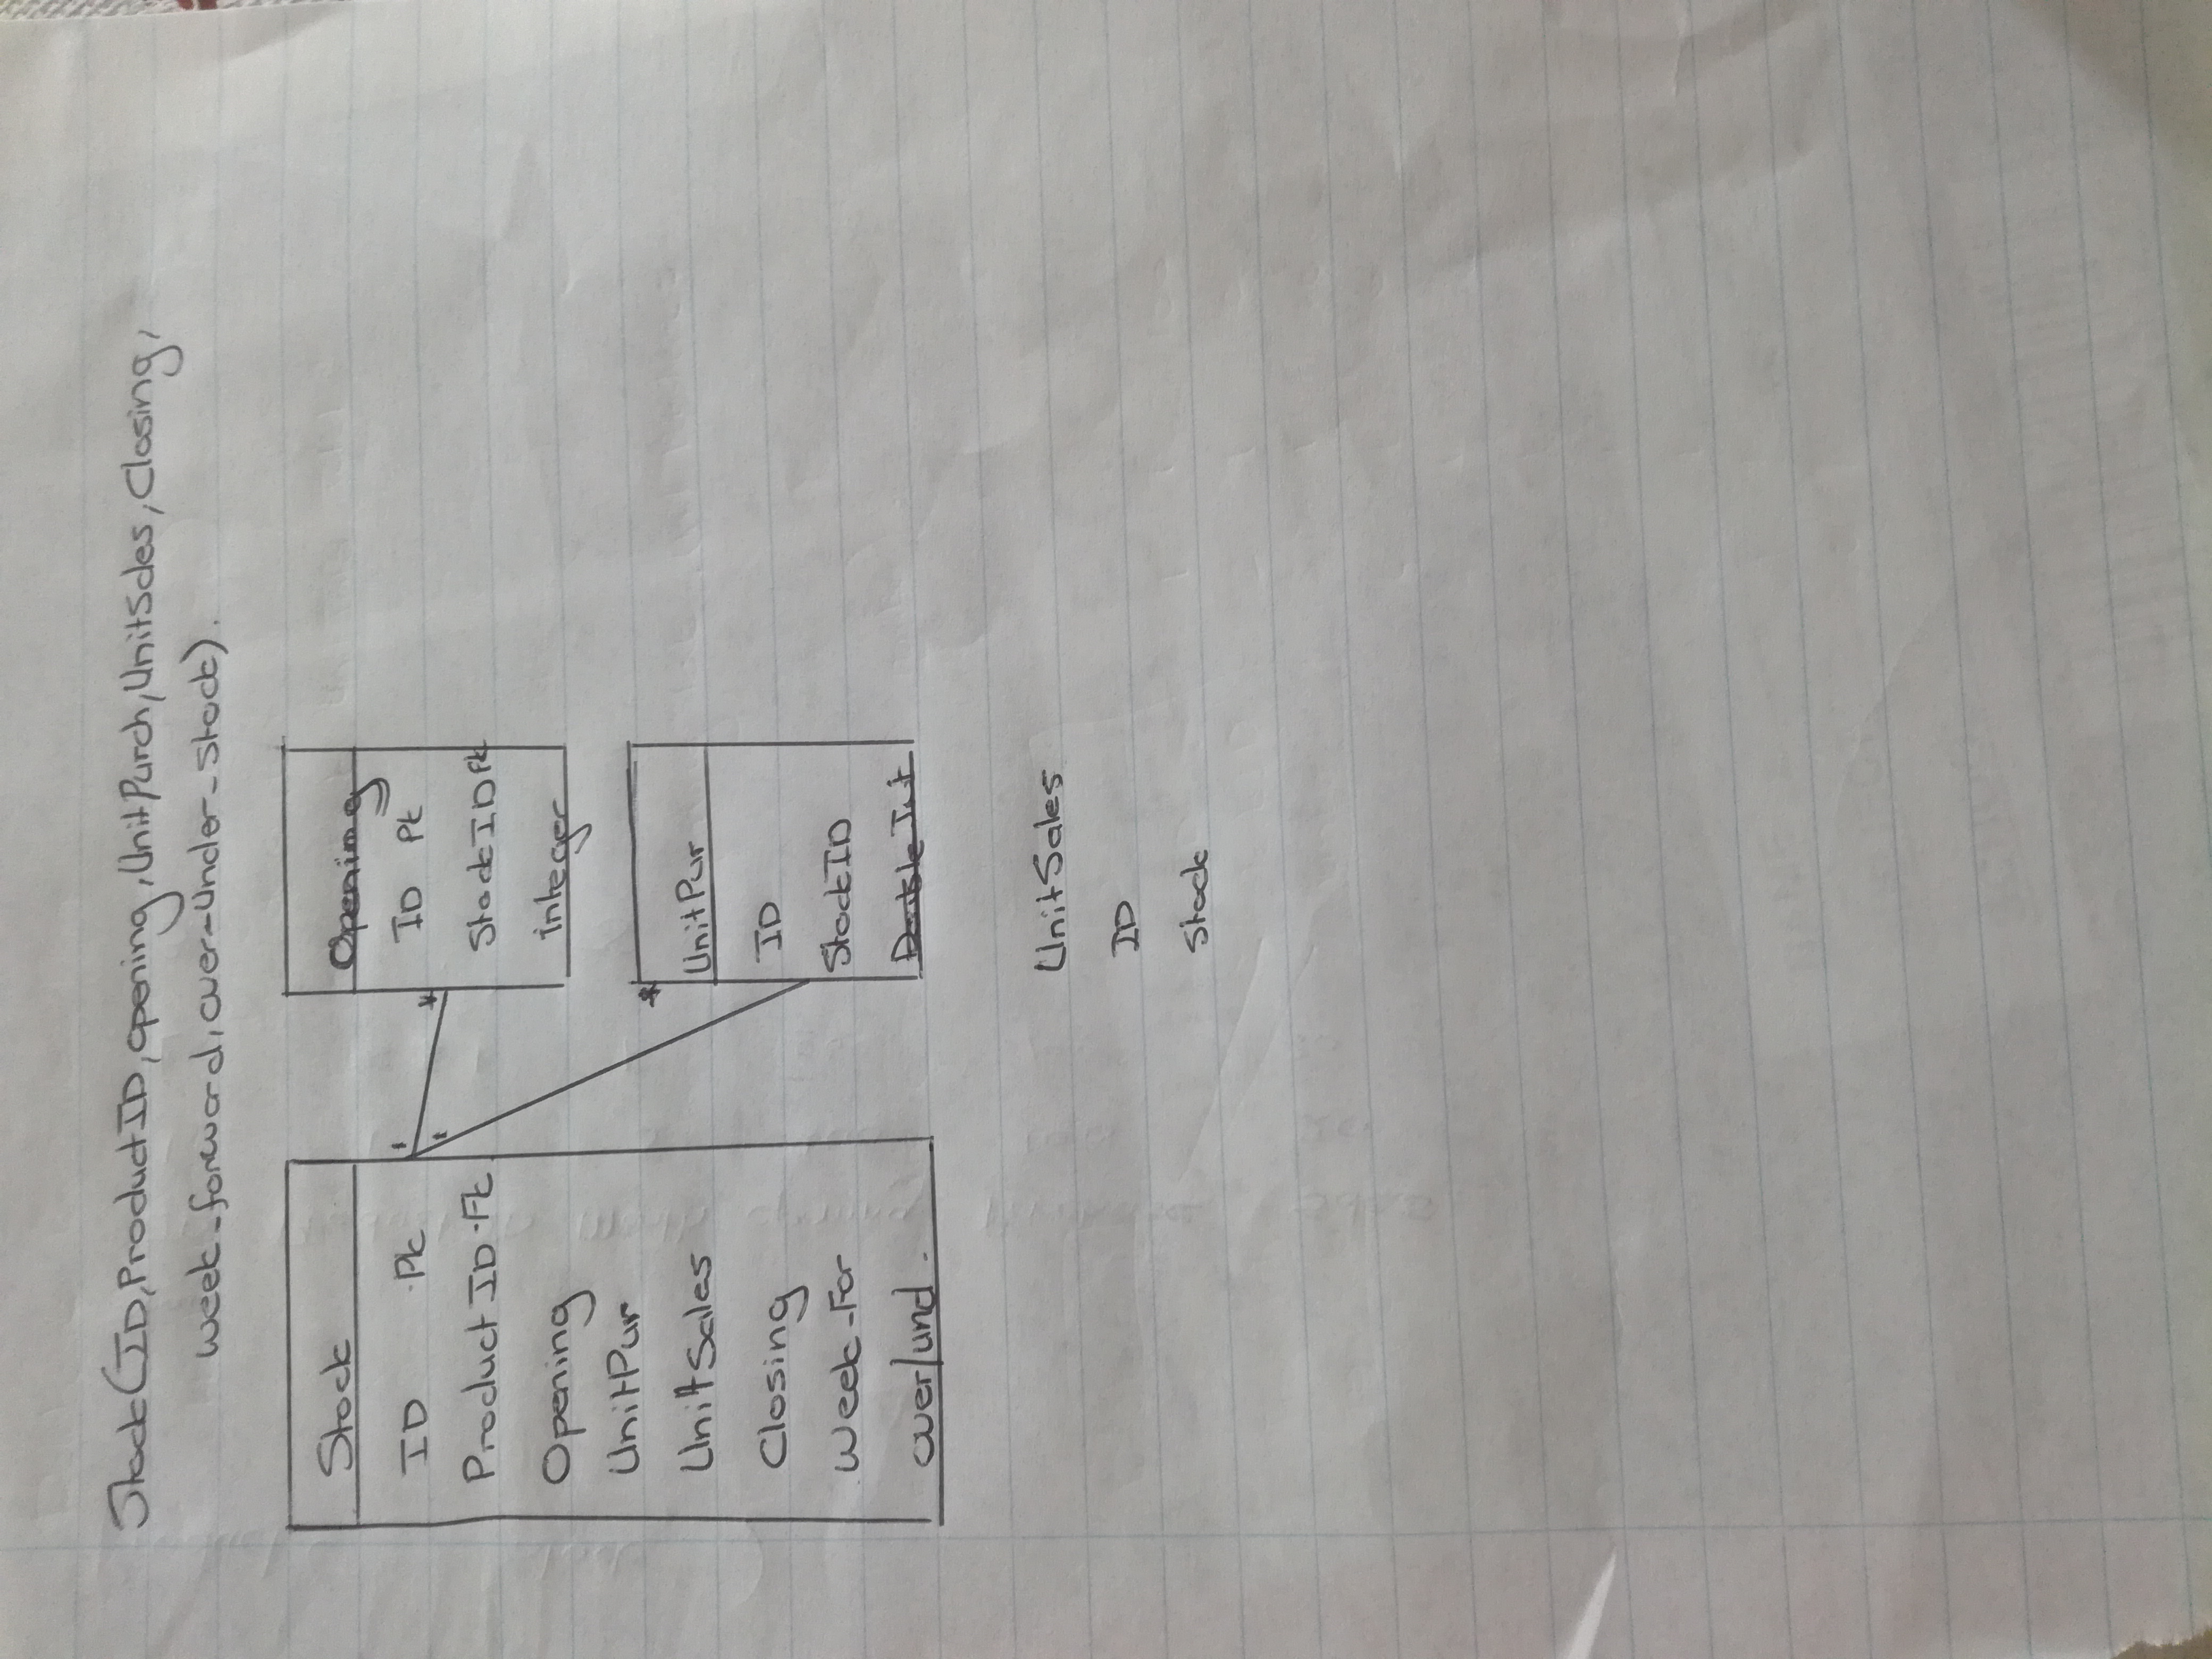 Stock(ID,ProductID,opening,UnitPurch,UnitSales,Closing,
week_foreword,over_under_stock).
Stock
ID .Pk
ProductID.Fk
Opening
UnitPur
UnitSales
Closing
Week_For
over/und.
1
1
*
*
Opening
ID Pk
StockIDFk
integer
UnitPur
ID
StockID
UnitSales
ID
Stock